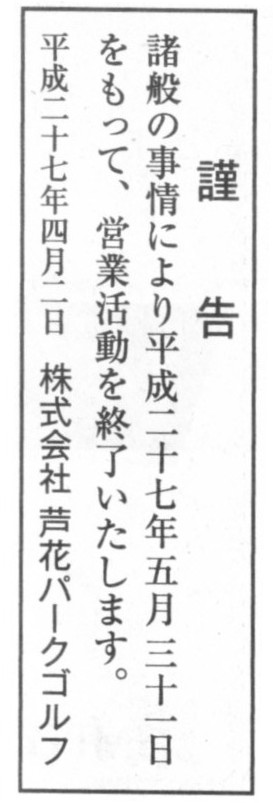 謹告
諸般の事情により平成二十七年五月三十一日
をもって、営業活動を終了いたします。
平成二十七年四月二日 株式会社 芦花パークゴルフ